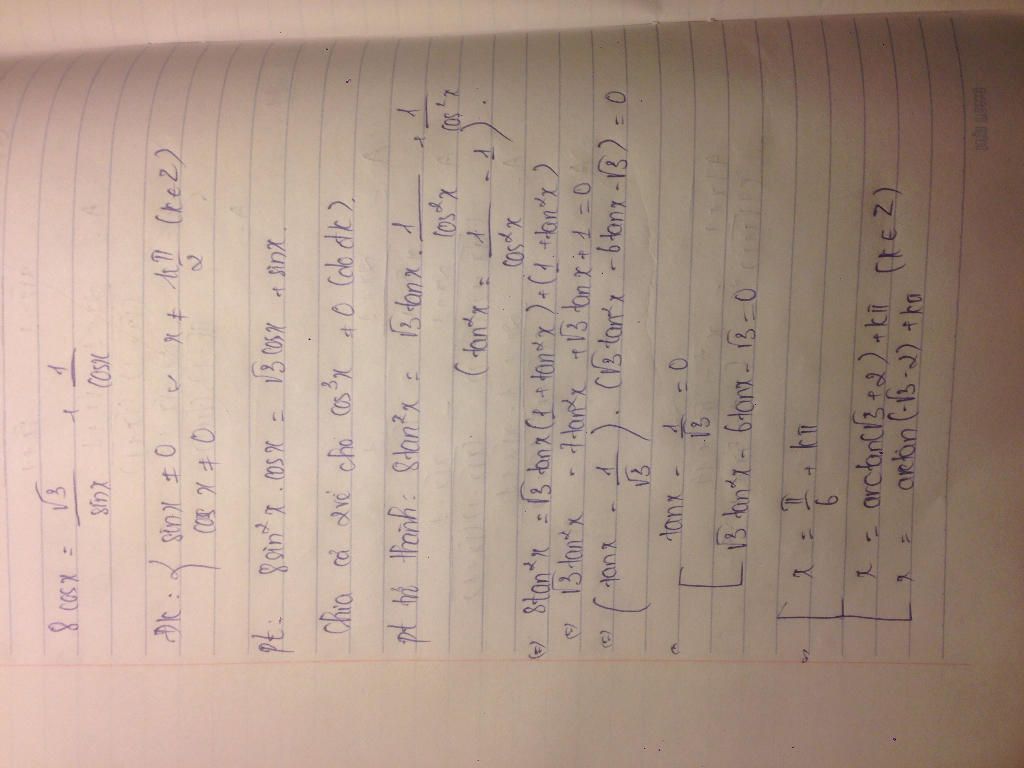 8 cosx = √3/sinx + 1/cosx
ĐK: { sinx ≠ 0 ↔ x ≠ kπ/2 (k ∈ Z)
cosx ≠ 0
pt: 8sin²x.cosx = √3cosx + sinx
Chia cả 2 vế cho cos³x ≠ 0 (do đk).
pt trở thành: 8tan²x = √3 tanx . 1/cos²x + 1/cos²x
(tan²x = 1/cos²x - 1).
(=) 8tan²x = √3 tanx(1+tan²x)+(1+tan²x)
(=) √3 tan³x - 7tan²x + √3 tanx + 1 = 0
(=) (tanx - 1/√3).(√3 tan²x - 6tanx - √3) = 0
[ tanx - 1/√3 = 0
√3 tan²x - 6tanx - √3 = 0
[ x = π/6 + kπ
x = arctan(√3+2) + kπ (k ∈ Z)
x = arctan(√3-2) + kπ